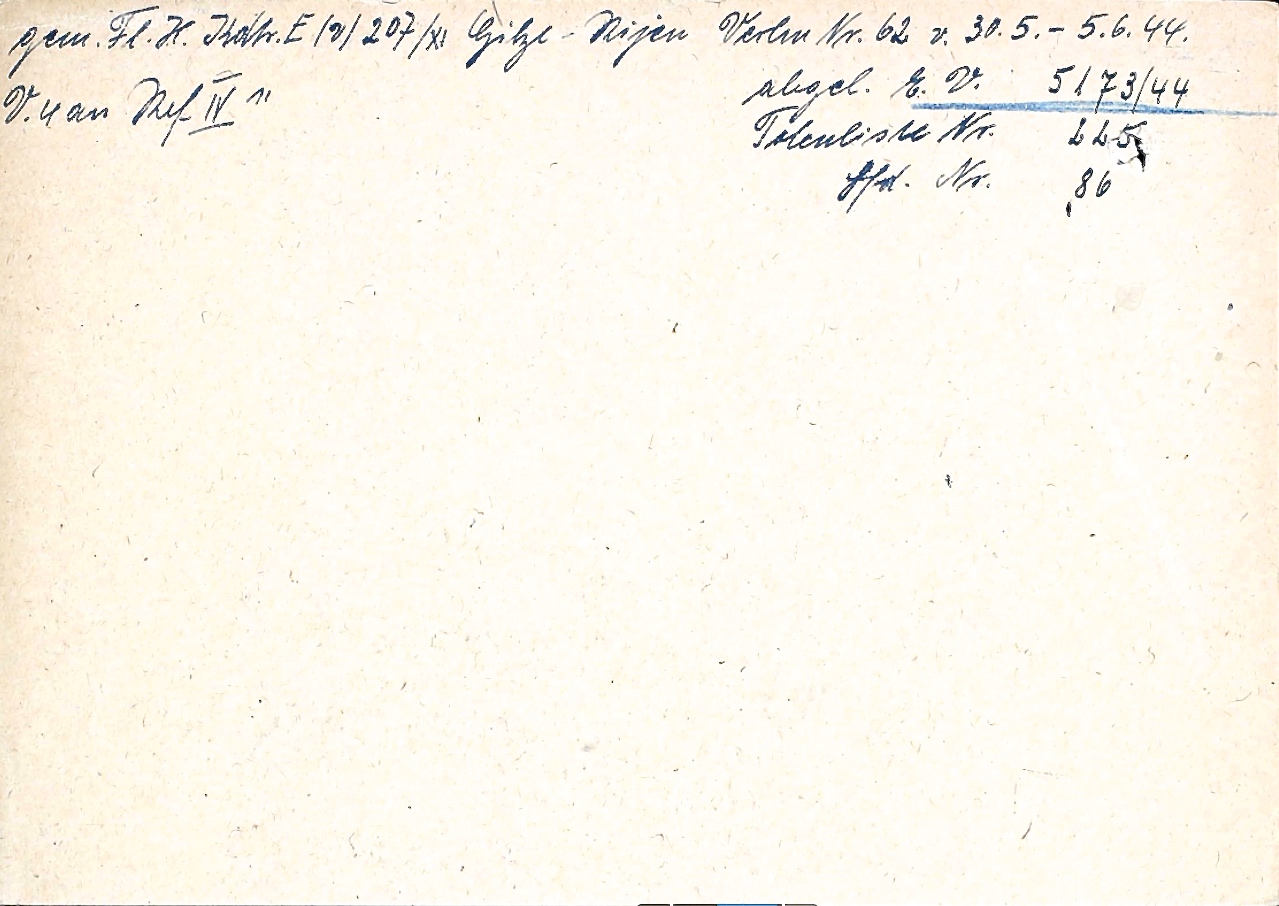 gem. Fl. H. Kdtr. E (v) 207/XI Gilze-Rijen Verlm Nr. 62 v. 30.5.-5.6.44.
abgel. E. V. 5173/44
V. 4 an Ref IV
Totenliste Nr. 225
lfd. Nr. 86